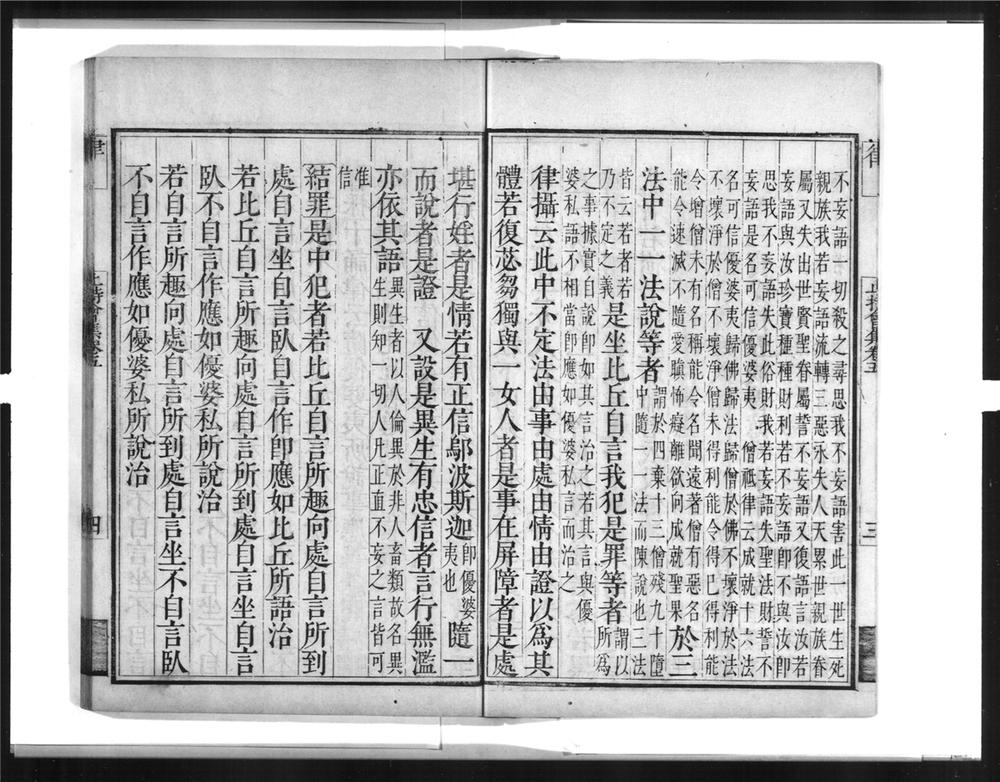 不妄語一切殺之尋思我不妄語害此一世生死
親族我若妄語流轉三惡永失人天累世親族眷
屬又失出世賢聖眷屬誓不妄語又後語言汝若
妄語與汝珍寶種種財利若不妄語即不與汝即
思我不妄語失此俗財我若妄語失聖法財誓不
妄語是名可信優婆夷　僧祇律云成就十六法
名可信優婆夷歸佛歸法歸僧於佛不壞淨於法
不壞淨於僧不壞淨僧未得利能令得已得利能
令增僧未有名稱能令名聞遠著僧有惡名
能令速滅不隨愛瞋怖癡離欲向成就聖果於三
法中一一法說等者謂於四棄十三僧殘九十墮中隨一一法而陳說也三法
皆云若者若乃不定之義是坐比丘自言我犯是罪等者謂以所為
之事據實自說即如其言治之若其言與優
婆私語不相當即應如優婆私言而治之
律攝云此中不定法由事由處由情由證以為其
體若復苾芻獨與一女人者是事在屏障者是處
律
三
堪行婬者是情若有正信鄔波斯迦即優婆夷也隨一
而說者是證　又設是異生有忠信者言行無濫
亦依其語異生者以人倫異於非人畜類故名異生則知一切人凡正直不妄之言皆可
准信
結罪是中犯者若比丘自言所趣向處自言所到
處自言坐自言臥自言作即應如比丘所語治
若比丘自言所趣向處自言所到處自言坐自言
臥不自言作應如優婆私所說治
若自言所趣向處自言所到處自言坐不自言臥
不自言作應如優婆私所說治
律
四